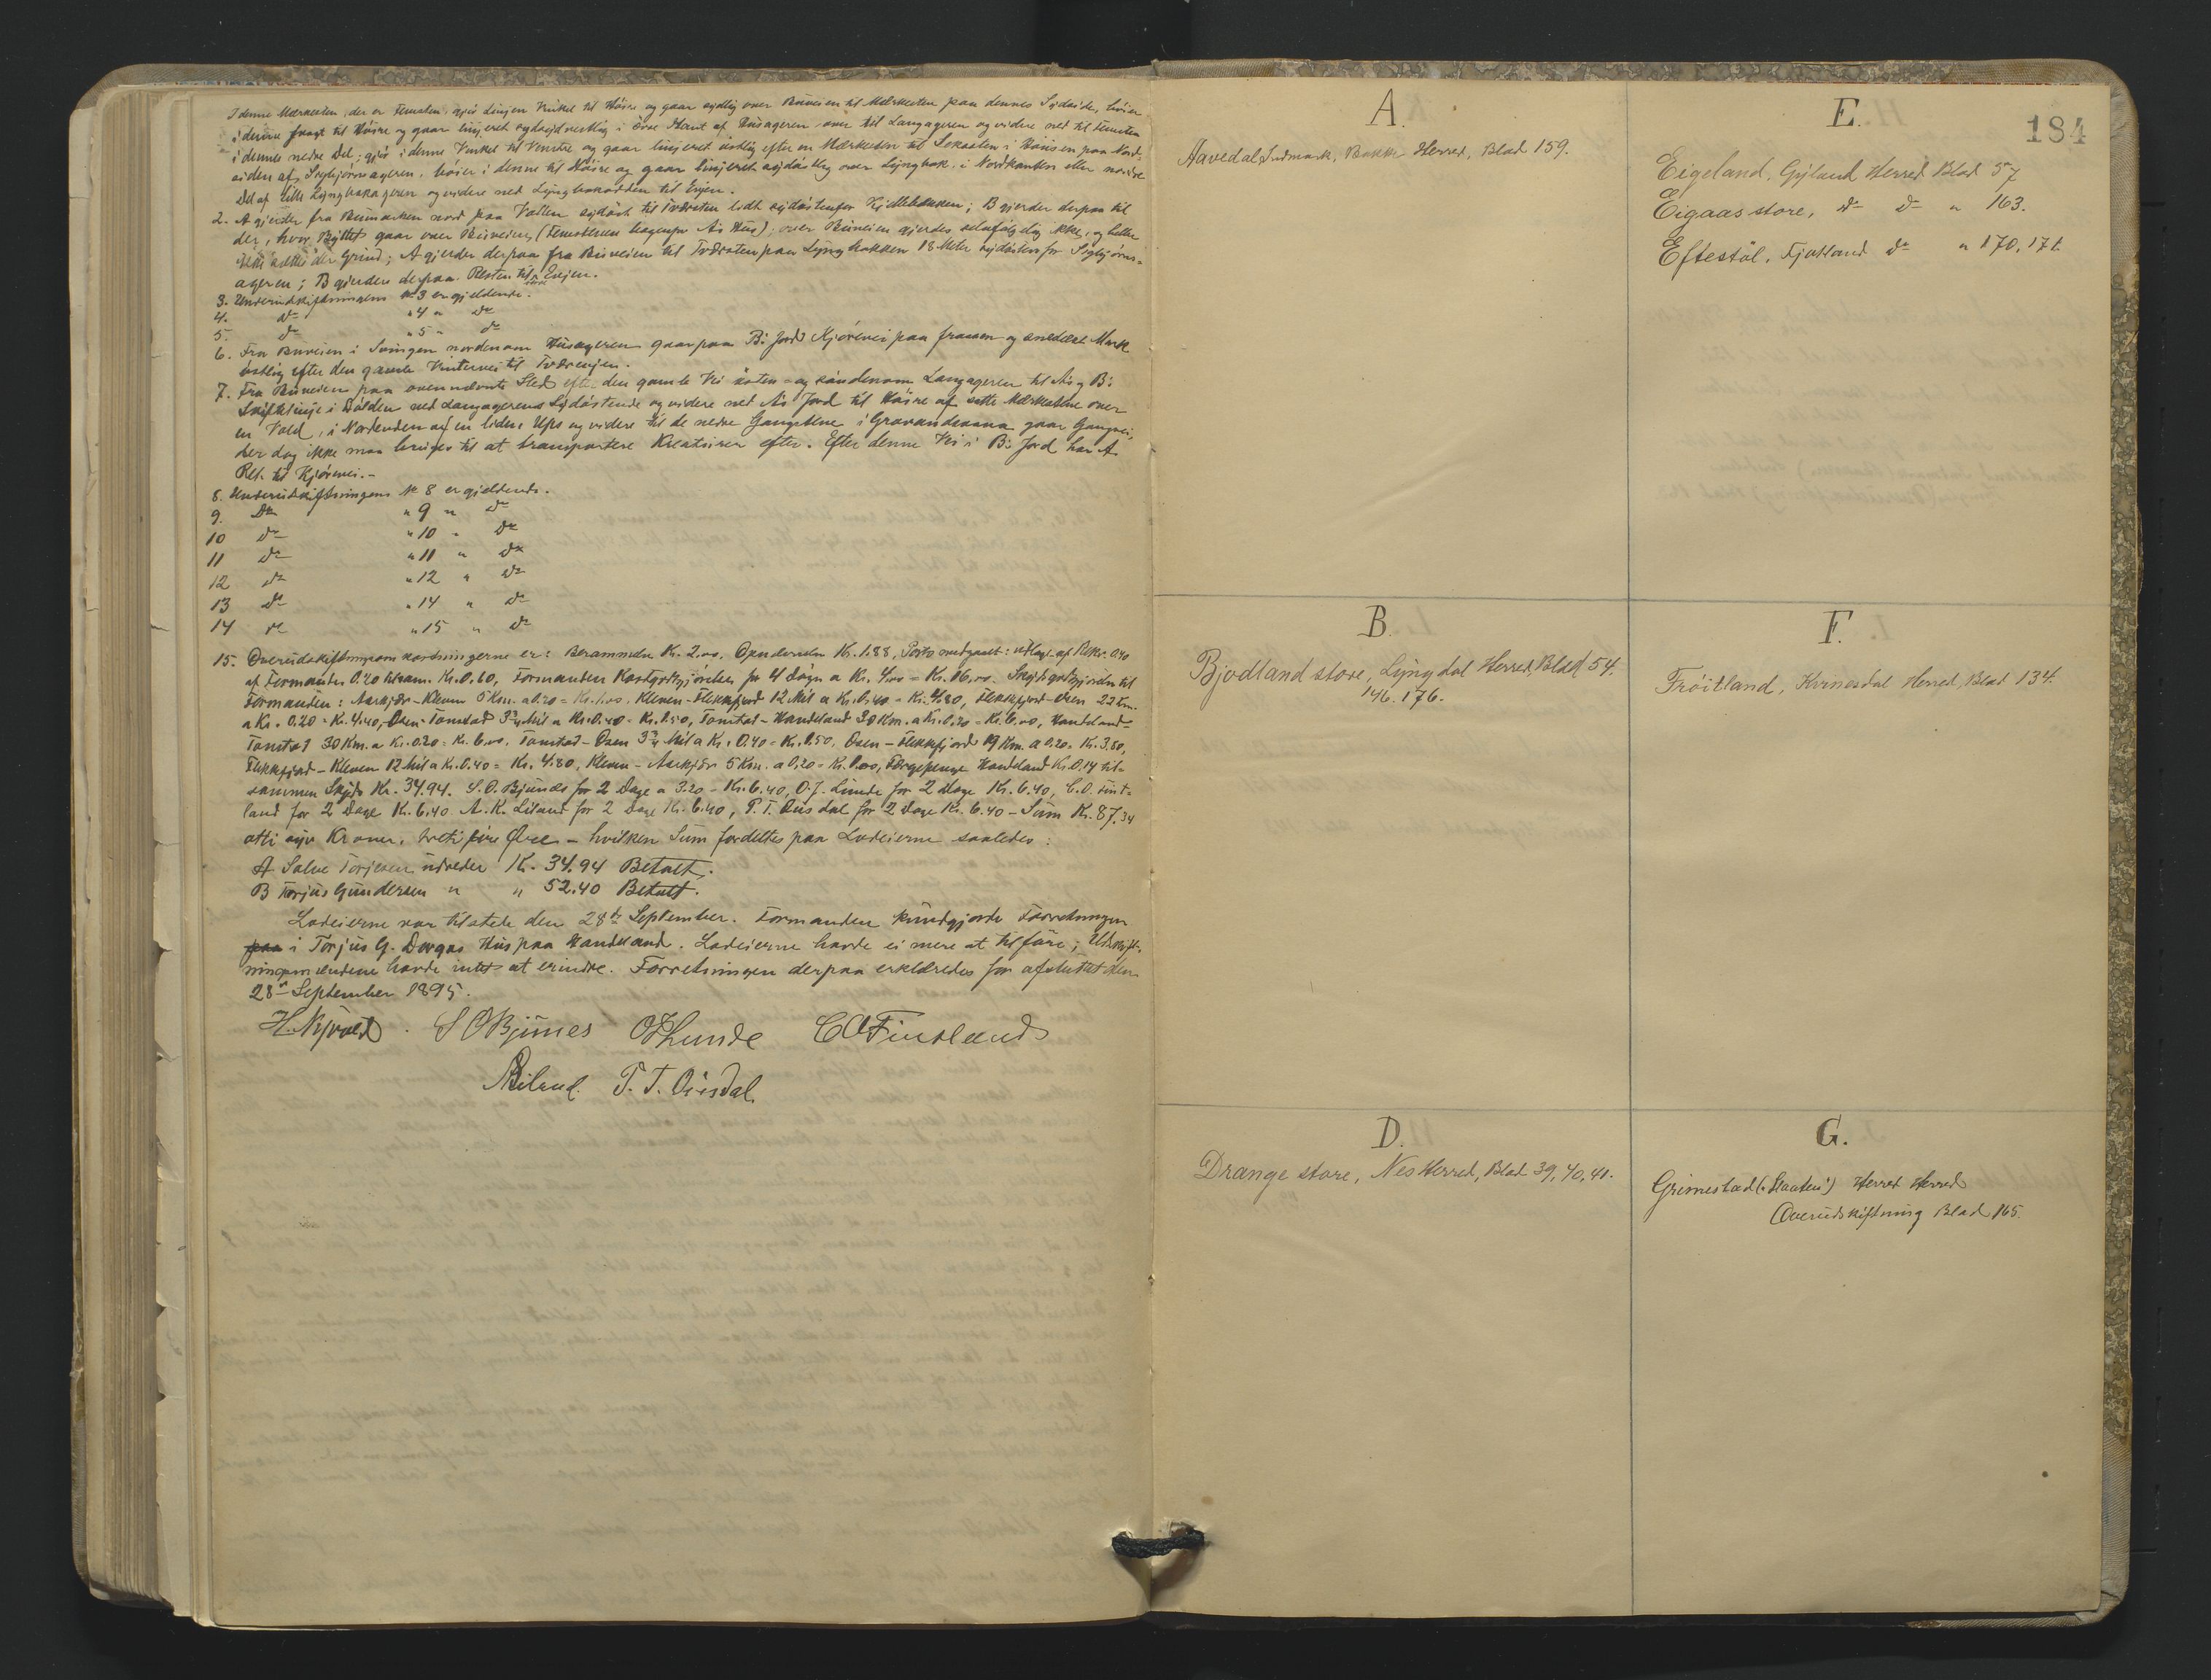 I denne Mærkesten, der er Femsten, gjør Linjen Vinkel til Høire og gaar sydlig over Buveien til Mærkesten paa dennes Sydside, bøier
i denne svagt til Høire og gaar linjeret sydsydvestlig i øvre Kant af Husageren over til Langageren og videre ned til Femsten
i dennes nedre Del; gjør i denne Vinkel til Venstre og gaar linjeret østlig efter en Mærkesten til Seksten i Bøisen paa Nord-
siden af Sigbjørnsageren, bøier i denne til Høire og gaar linjeret sydøstlig over Lyngbak, i Nordkanten eller nordre
Del af lille Lyngbakageren og videre ned Lyngbakodden til Engen.
2. A gjerder fra Bumarken nord paa Vollen sydøst til Tværsten lidt sydøstenfor Kjillebækken; B gjerder derpaa til
der, hvor Byttet gaar over Buveien, (Femstenen bagenfor A's Hus); over Buveien gjerdes selvfølgelig ikke, og heller
ikke sættes der Grind; A gjerder derpaa fra Buveien til Tværsten paa Lyngbakken 18 Meter sydøsten for Sigbjørns-
ageren; B gjerder derpaa Resten til Engen.
3. Underudskiftningens № 3 er gjeldende.
4. do " 4 " do
5. do " 5 " do
6. Fra Buveien i Svingen nordenom Husageren gaar paa B's Jord Kjørevei paa frossen og snedækt Mark
østlig efter den gamle Vintervei til Tværengen.
7. Fra Buveien paa ovennævnte Sted efter den gamle Vei østen- og søndenom Langageren til A's og B's
Skiftelinje i Dolden ved Langagerens Sydøstende og videre ned A's Jord til Høire af satte Mærkestene over
en Vold, i Nordenden af en liden Ups og videre til de nedre Gangstene i gaar Gangvei,
der dog ikke maa bruges til at transportere Kreaturer efter. Efter denne Vei i B's Jord har A
Ret til Kjørevei.-
8. Underudskiftningens № 8 er gjeldende.
9. Do " 9 " do
10 do " 10 " do
11 do " 11 " do
12 do " 12 " do
13 do " 14 " do
14 do " 15 " do
15. Overudskiftningsomkostningerne er: Berammelse Kr. 2.00, Kr. 1.88, Porto medgaaet: udlagt af Rekv. 0.40
af Formanden 0.20 tilsam. Kr. 0.60, Formanden Kostgodtgjørelse for 4 Døgn a Kr. 4.00 = Kr. 16.00. Skydsgodtgjørelse til
Formanden: Aaskjær - Kleven 5 Km. a 0.20 = Kr. 1.00, Kleven - Flekkefjord 12 Mil a Kr. 0.40 = Kr. 4.80, Flekkefjord - Osen 22 Km.
a Kr. 0.20 = Kr. 4.40, Osen - Tonstad 3¾ Mil a Kr. 0.40 = Kr. 1.50, Tonstad - Handeland 30 Km. a Kr. 0.20 = Kr. 6.00, Handeland -
Tonstad 30 Km. a Kr. 0.20 = Kr. 6.00, Tonstad - Osen 3¾ Mil a Kr. 0.40 = Kr. 1.50, Osen - Flekkefjord 19 Km. a 0.20 = Kr. 3.80,
Flekkefjord - Kleven 12 Mil a Kr. 0.40 = Kr. 4.80, Kleven - Aaskjær 5 Km. a 0.20 = Kr. 1.00, Færgepenge Handeland Kr. 0.14 til-
sammen Skyds Kr. 34.94. S. O. Bjunes for 2 Dage a 3.20 = Kr. 6.40, O. J. Lunde for 2 Dage Kr. 6.40, C. O. Fins-
land for 2 Dage Kr. 6.40. A. K. Liland for 2 Dage Kr. 6.40, P. T. Ousdal for 2 Dage Kr. 6.40 - Sum Kr. 87.34
otti syv Kroner, treti fire Øre - hvilken Sum fordeltes paa Lodeierne saaledes:
A Salve Torjesen udreder Kr. 34.94 Betalt.
B Torjus Gundersen " " 52.40 Betalt.
Lodeierne var tilstede den 28de September. Formanden kundgjorde Forretningen
paa i Torjus G. Dorgas Hus paa Handeland. Lodeierne havde ei mere at tilføre; Udskift-
ningsmændene havde intet at erindre. Forretningen derpaa erklæredes for afsluttet den
28de September 1895.
H. Njøved. S O Bjunes O J Lunde C O Finsland
A Liland. P. T. Ousdal.
184
A.
Aavedal Indmark, Bakke Herred, Blad 159.
E.
Eigeland, Gyland Herred Blad 57
Eigaas store, do do " 163.
Eftestøl, Fjotland do " 170, 171.
B.
Bjodland store, Lyngdal Herred, Blad 54.
146. 176.
F.
Frøitland, Kvinesdal Herred, Blad 134.
D.
Drange store, Nes Herred, Blad 39, 40, 41.
G.
Grimestad ("Slaaten") Herred Herred
Overudskiftning Blad 165.